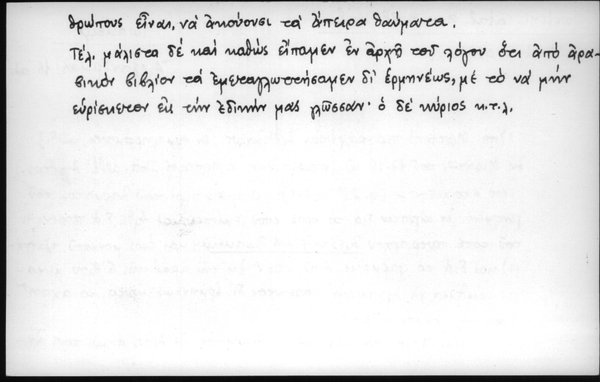 θρώπους εἶναι, νὰ ἀκούουσι τὰ ἄπειρα θαύματα.
Τέλ. μάλιστα δὲ καὶ καθὼς εἴπαμεν ἐν ἀρχῇ τοῦ λόγου ὅτι ἀπὸ ἀρα-
βικὸν βιβλίον τὰ ἐμεταγλωττήσαμεν δι' ἑρμηνέως, μὲ τὸ νὰ μὴν
εὑρίσκεται εἰς τὴν ἐδικήν μας γλῶσσαν· ὁ δὲ κύριος κ.τ.λ.